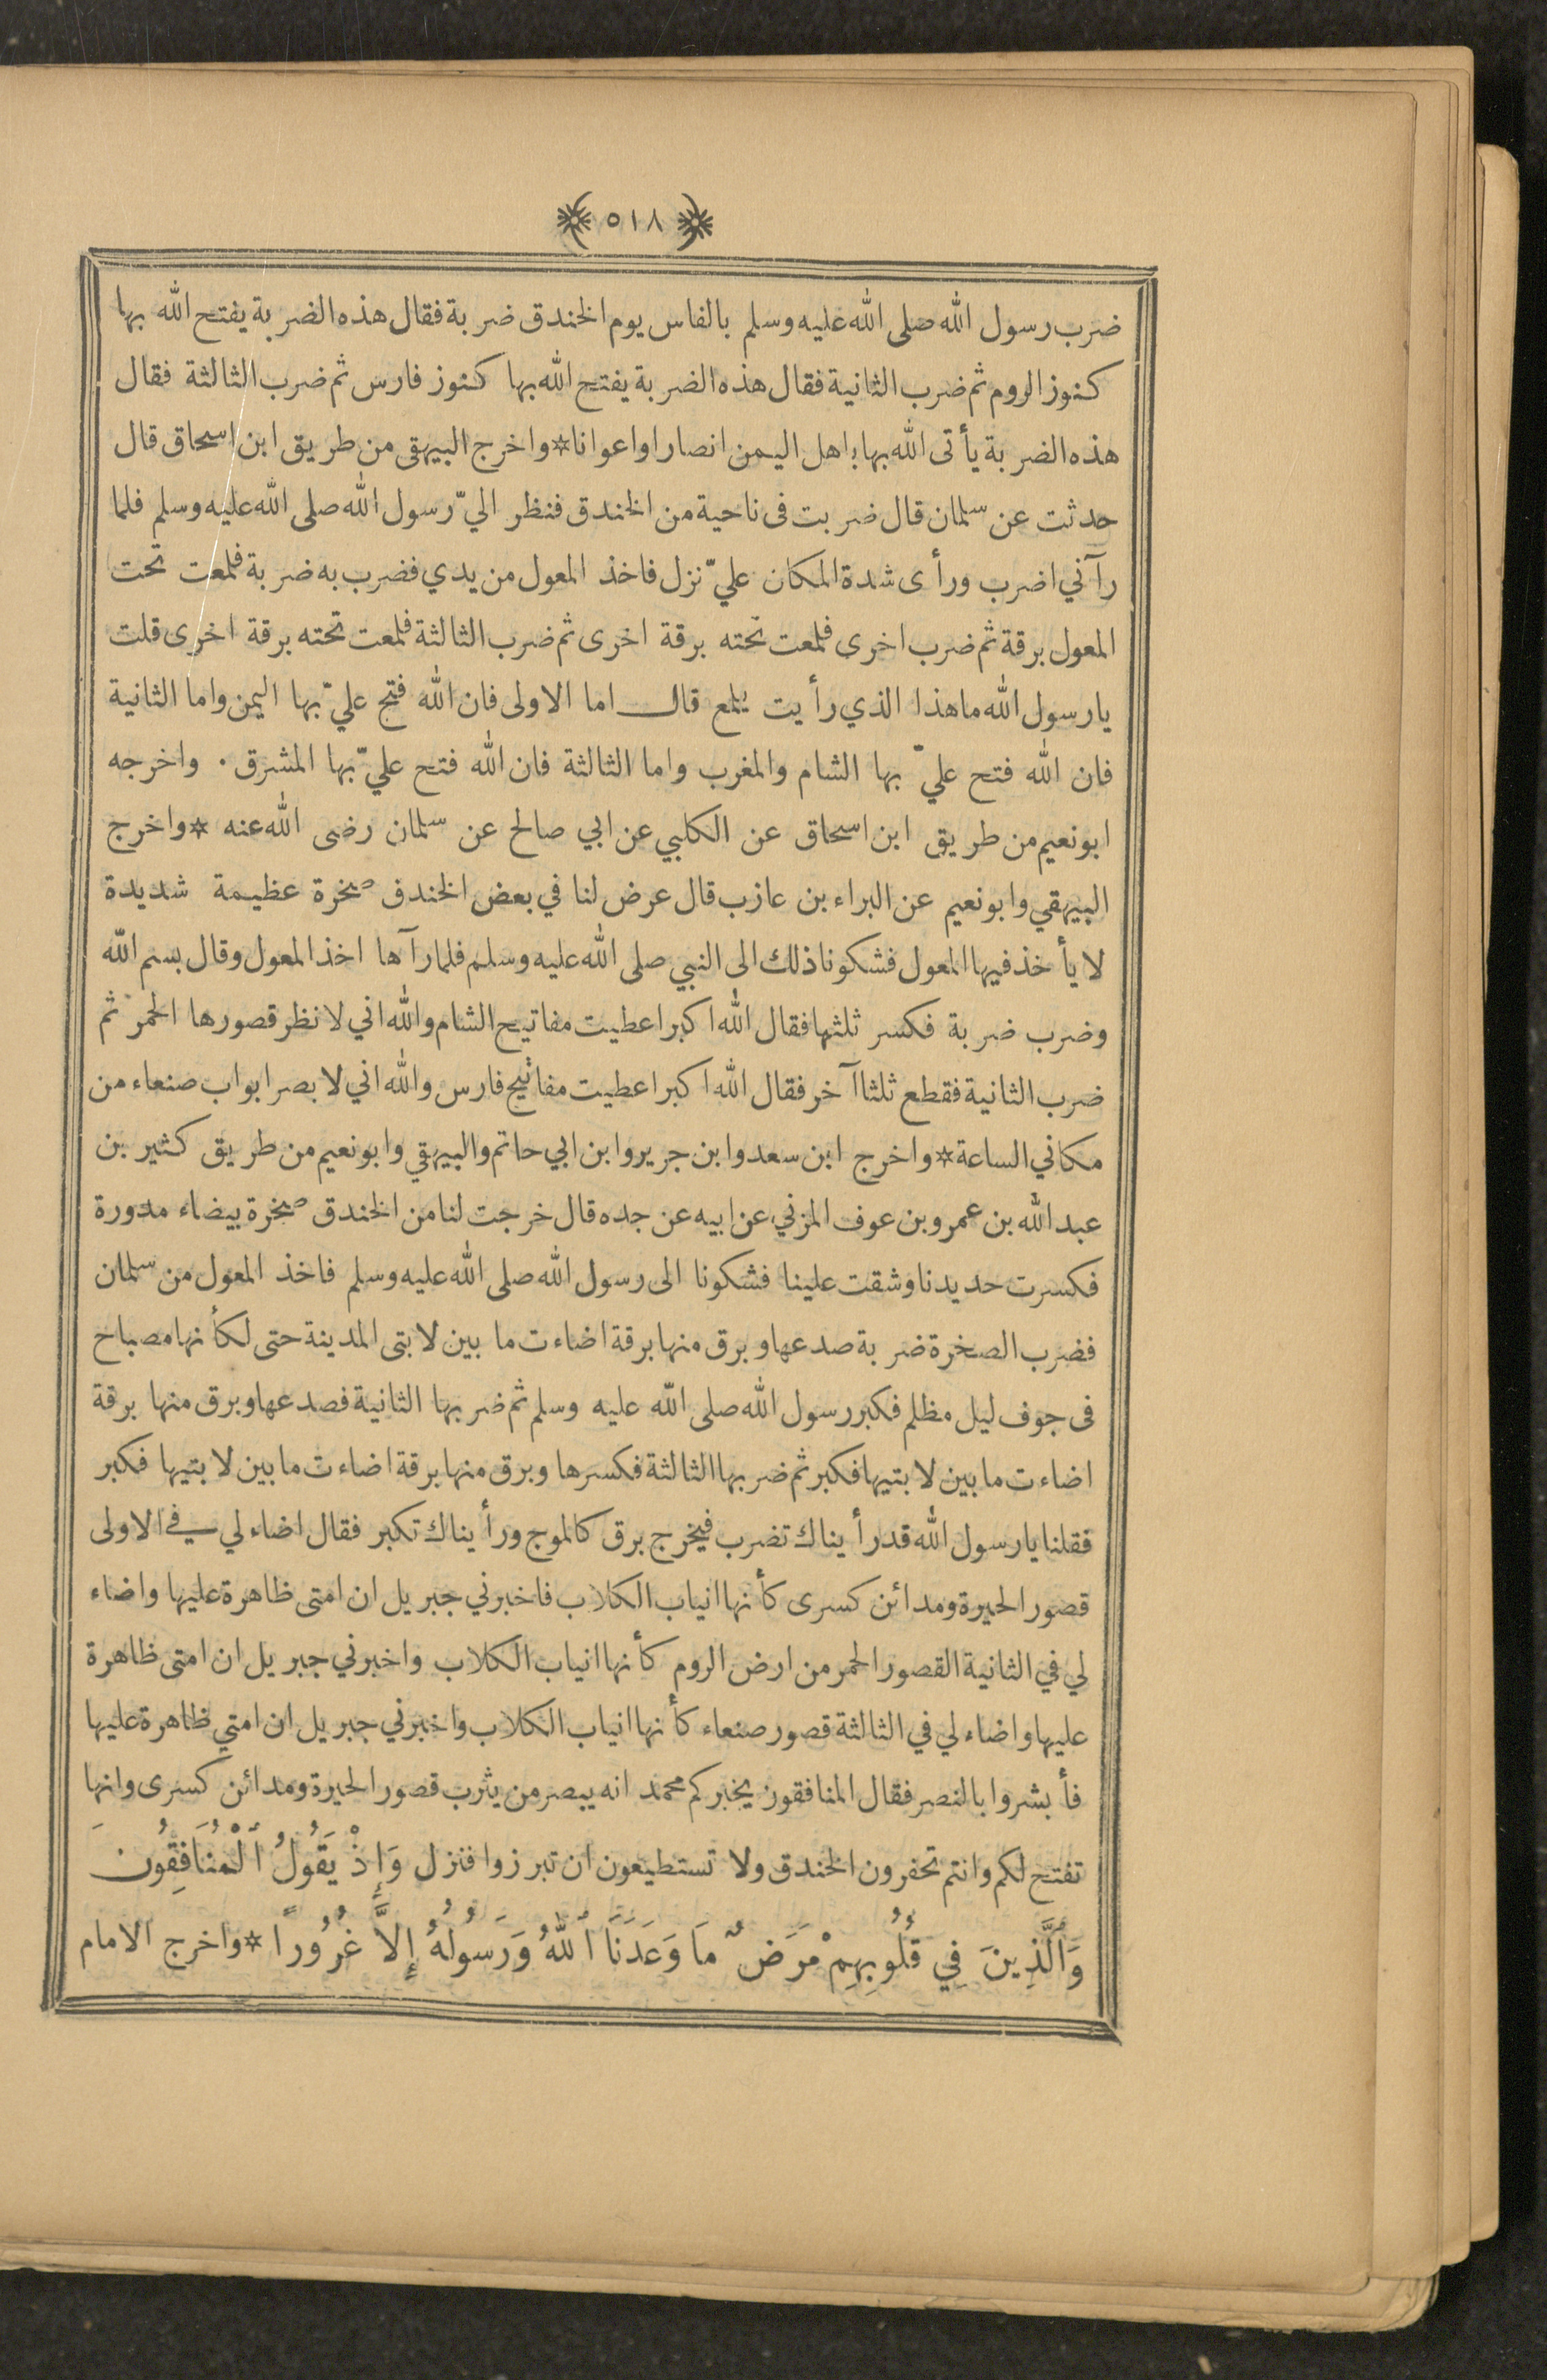 ﴿٥١٨﴾
ضرب رسول الله صلى الله عليه وسلم بالفاس يوم الخندق ضربة فقال هذه الضربة يفتح الله بها
كنوز الروم ثم ضرب الثانية فقال هذه الضربة يفتح الله بها كنوز فارس ثم ضرب الثالثة فقال
هذه الضربة يأتى الله بها باهل اليمن انصارا واعوانا * واخرج البيهقى من طريق ابن اسحاق قال
حدثت عن سلمان قال ضربت فى ناحية من الخندق فنظر اليّ رسول الله صلى الله عليه وسلم فلما
رآني اضرب ورأى شدة المكان عليّ نزل فاخذ المعول من يدي فضرب به ضربة فلمعت تحت
المعول برقة ثم ضرب اخرى فلمعت تحته برقة اخرى ثم ضرب الثالثة فلمعت تحته برقة اخرى قلت
يا رسول الله ما هذا الذي رأيت يلمع قال اما الاولى فان الله فتح عليّ بها اليمن واما الثانية
فان الله فتح عليّ بها الشام والمغرب واما الثالثة فان الله فتح عليّ بها المشرق . واخرجه
ابو نعيم من طريق ابن اسحاق عن الكلبي عن ابي صالح عن سلمان رضى الله عنه * واخرج
البيهقي وابو نعيم عن البراء بن عازب قال عرض لنا في بعض الخندق صخرة عظيمة شديدة
لا يأخذ فيها المعول فشكونا ذلك الى النبي صلى الله عليه وسلم فلما رآها اخذ المعول وقال بسم الله
وضرب ضربة فكسر ثلثها فقال الله اكبر اعطيت مفاتيح الشام والله اني لانظر قصورها الحمر ثم
ضرب الثانية فقطع ثلثا آخر فقال الله اكبر اعطيت مفاتيح فارس والله اني لا بصر ابواب صنعاء من
مكاني الساعة * واخرج ابن سعد وابن جرير وابن ابي حاتم والبيهقي وابو نعيم من طريق كثير بن
عبد الله بن عمرو بن عوف المزني عن ابيه عن جده قال خرجت لنا من الخندق صخرة بيضاء مدورة
فكسرت حديدنا وشقت علينا فشكونا الى رسول الله صلى الله عليه وسلم فاخذ المعول من سلمان
فضرب الصخرة ضربة صدعها وبرق منها برقة اضاءت ما بين لابتى المدينة حتى لكأنها مصباح
فى جوف ليل مظلم فكبر رسول الله صلى الله عليه وسلم ثم ضربها الثانية فصدعها وبرق منها برقة
اضاءت ما بين لابتيها فكبر ثم ضربها الثالثة فكسرها وبرق منها برقة اضاءت ما بين لابتيها فكبر
فقلنا يا رسول الله قد رأيناك تضرب فيخرج برق كالموج ورأيناك تكبر فقال اضاء لي في الاولى
قصور الحيرة ومدائن كسرى كأنها انياب الكلاب فاخبرني جبريل ان امتى ظاهرة عليها واضاء
لي في الثانية القصور الحمر من ارض الروم كأنها انياب الكلاب واخبرني جبريل ان امتى ظاهرة
عليها واضاء لي في الثالثة قصور صنعاء كأنها انياب الكلاب واخبرني جبريل ان امتي ظاهرة عليها
فأبشروا بالنصر فقال المنافقون يخبركم محمد انه يبصر من يثرب قصور الحيرة ومدائن كسرى وانها
تفتح لكم وانتم تحفرون الخندق ولا تستطيعون ان تبرزوا فنزل وَإِذْ يَقُولُ ٱلْمُنَافِقُونَ
وَٱلَّذِينَ فِي قُلُوبِهِمْ مَرَضٌ مَا وَعَدَنَا ٱللهُ وَرَسُولُهُ إِلاَّ غُرُورًا * واخرج الامام